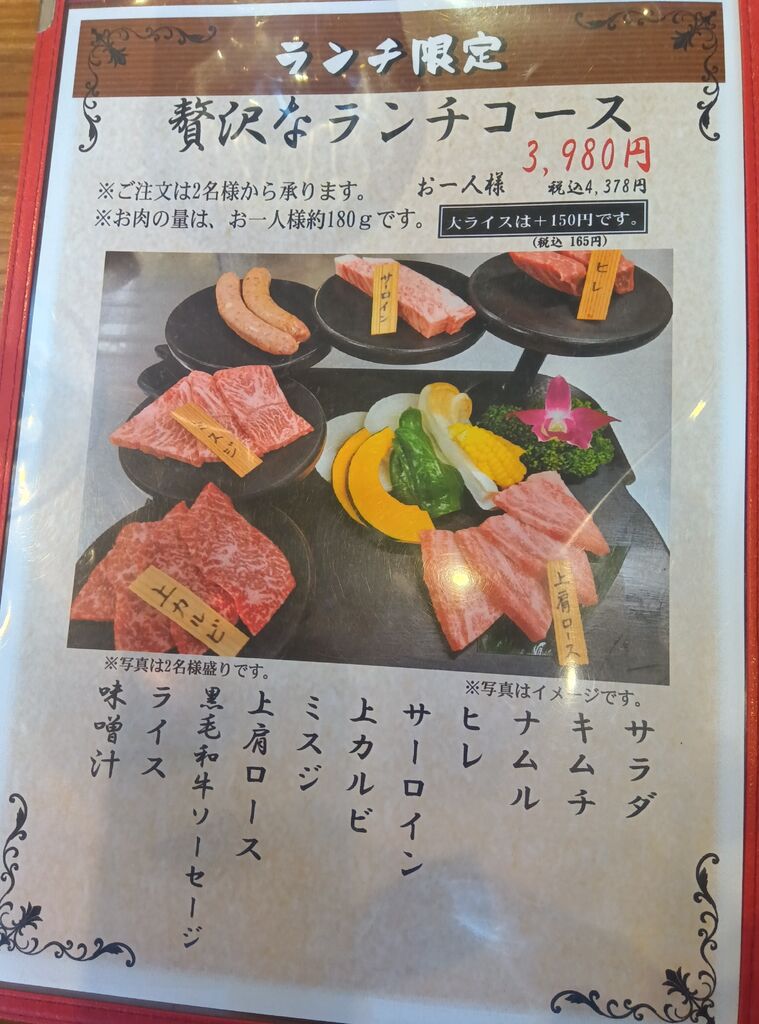 ランチ限定
贅沢なランチコース
3,980円
※ご注文は2名様から承ります。 お一人様 税込4,378円
※お肉の量は、お一人様約180gです。 大ライスは+150円です。
(税込 165円)
サーロイン
ヒレ
ミスジ
上カルビ
上肩ロース
※写真は2名様盛りです。
※写真はイメージです。
サラダ
キムチ
ナムル
ヒレ
サーロイン
上カルビ
ミスジ
上肩ロース
黒毛和牛ソーセージ
ライス
味噌汁